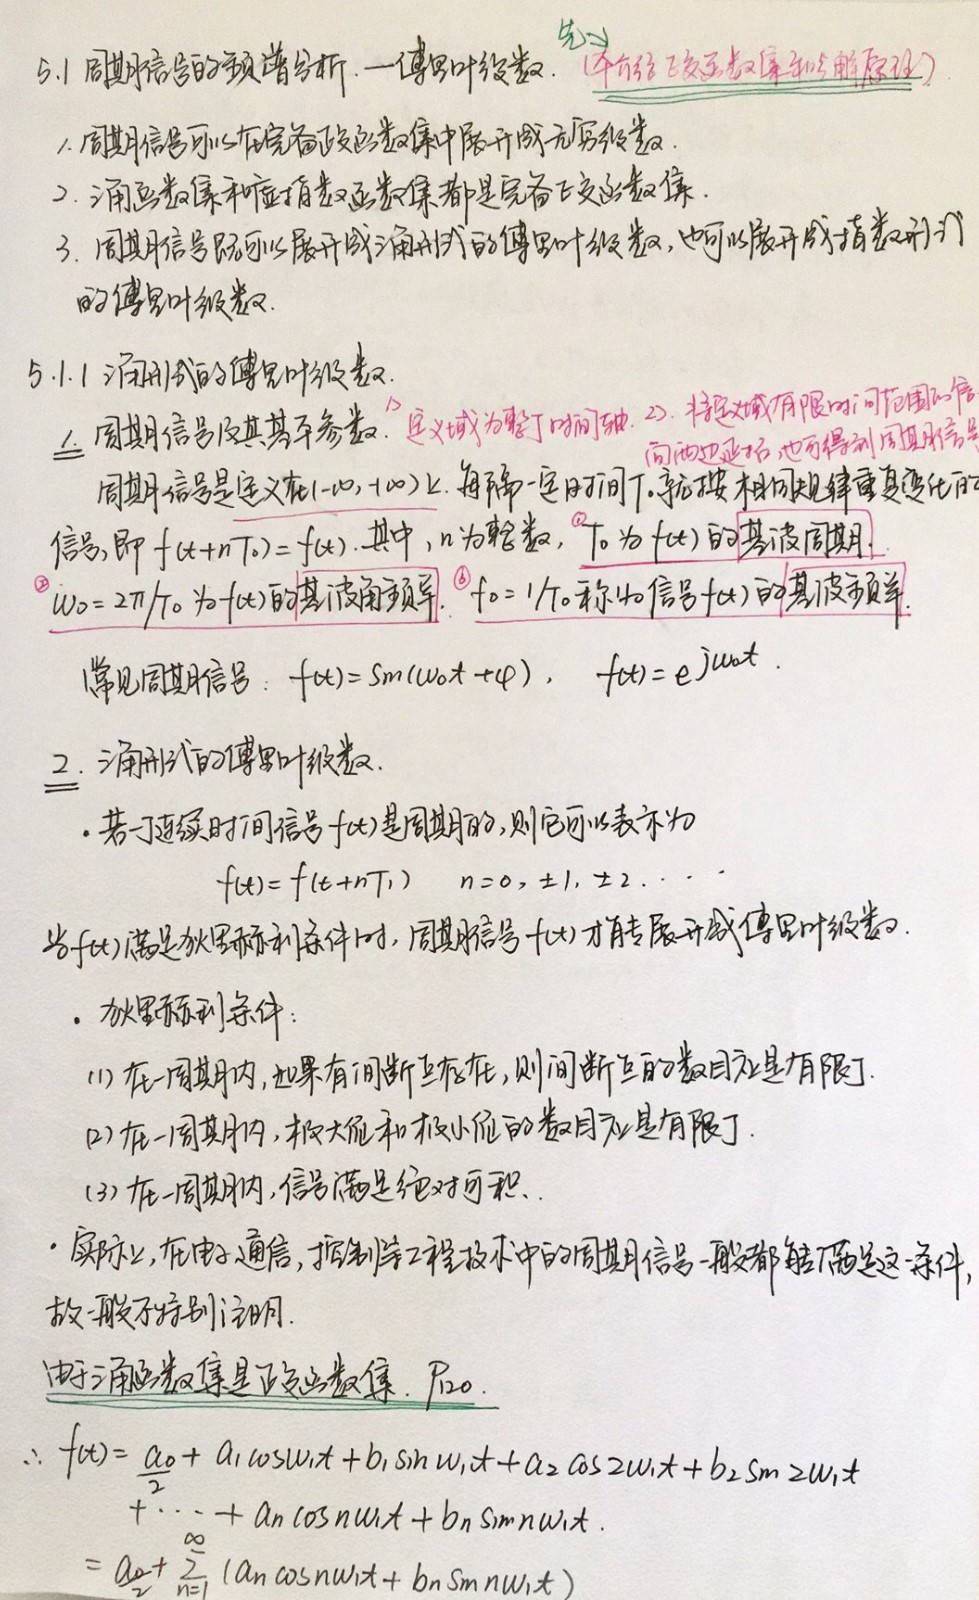 5.1 周期信号的频谱分析.—傅里叶级数. (本节介绍正交函数集和分解原理)
先
1. 周期信号可以在完备正交函数集中展开成无穷级数.
2. 三角函数集和虚指数函数集都是完备正交函数集.
3. 周期信号既可以展开成三角形式的傅里叶级数,也可以展开成指数形式
的傅里叶级数.
5.1.1 三角形式的傅里叶级数.
1. 周期信号及其基本参数. 1) 定义域为整个时间轴. 2). 将定义域有限时间范围的信
向两边延拓,也可得到周期信号
周期信号是定义在(-∞,+∞)上.每隔一定时间T₀,按相同规律重复变化的
信号,即 f(t+nT₀)=f(t).其中,n为整数, ①T₀为f(t)的基波周期.
②ω₀=2π/T₀为f(t)的基波角频率. ③f₀=1/T₀称为信号f(t)的基波频率.
常见周期信号: f(t)=sin(ω₀t+φ), f(t)=e^{jω₀t}.
2. 三角形式的傅里叶级数.
·若一个连续时间信号f(t)是周期的,则它可以表示为
f(t)=f(t+nT₁) n=0,±1,±2....
当f(t)满足狄里赫利条件时,周期信号f(t)才能展开成傅里叶级数.
· 狄里赫利条件:
(1) 在一周期内,如果有间断点存在,则间断点的数目应是有限个.
(2) 在一周期内,极大值和极小值的数目应是有限个.
(3) 在一周期内,信号满足绝对可积.
·实际上,在电子通信,控制等工程技术中的周期信号一般都能满足这一条件,
故一般不特别注明.
由于三角函数集是正交函数集. P₁₂₀.
∴ f(t)=a₀/2+a₁cosω₁t+b₁sinω₁t+a₂cos2ω₁t+b₂sin2ω₁t
+···+aₙcosnω₁t+bₙsinnω₁t.
=a₀/2+∑_{n=1}^{∞}(aₙcosnω₁t+bₙsinnω₁t)